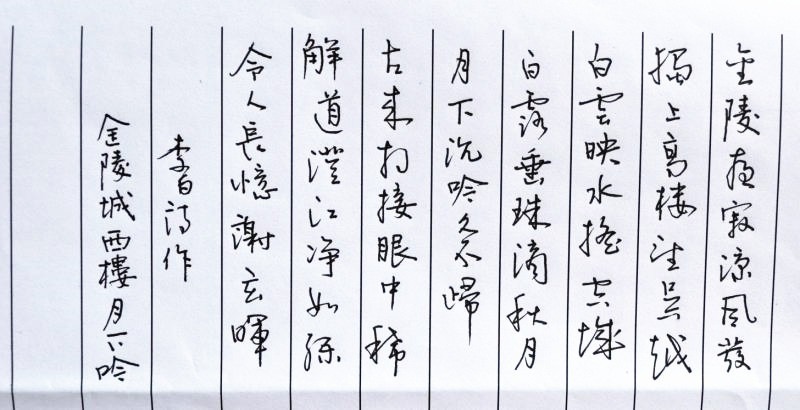 金陵夜寂凉风發
獨上高楼望吴越
白雲映水摇空城
白露垂珠滴秋月
月下沉吟久不歸
古来相接眼中稀
解道澄江净如練
令人長憶謝玄暉
李白詩作
金陵城西樓月下吟